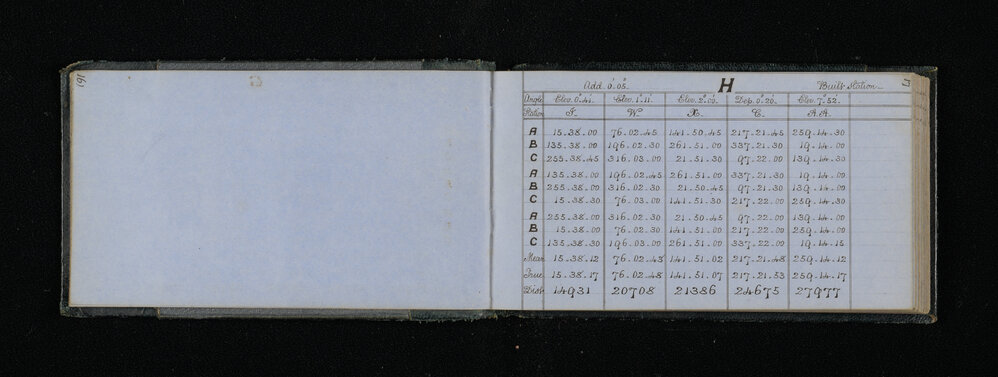 Add 0°.05" H Built Station
Angle Elev. 0°.44' Elev. 1°.11' Elev. 2°.05' Dep. 0°.20' Elev. 7°.52'
Station I. W. X. C. A.A.
A 15.38.00 76.02.45 141.50.45 217.21.45 259.14.30
B 135.38.00 196.02.30 261.51.00 337.21.30 19.14.00
C 255.38.45 316.03.00 21.51.30 97.22.00 139.14.30
A 135.38.00 196.02.45 261.51.00 337.21.30 19.14.00
B 255.38.00 316.02.30 21.50.45 97.21.30 139.14.00
C 15.38.30 76.03.00 141.51.30 217.22.00 259.14.30
A 255.38.00 316.02.30 21.50.45 97.22.00 139.14.00
B 15.38.00 76.02.30 141.51.00 217.22.00 259.14.00
C 135.38.30 196.03.00 261.51.00 337.22.00 19.14.15
Mean 15.38.12 76.02.43 141.51.02 217.21.48 259.14.12
True 15.38.17 76.02.48 141.51.07 217.21.53 259.14.17
Dist. 14931 20708 21386 24675 27977